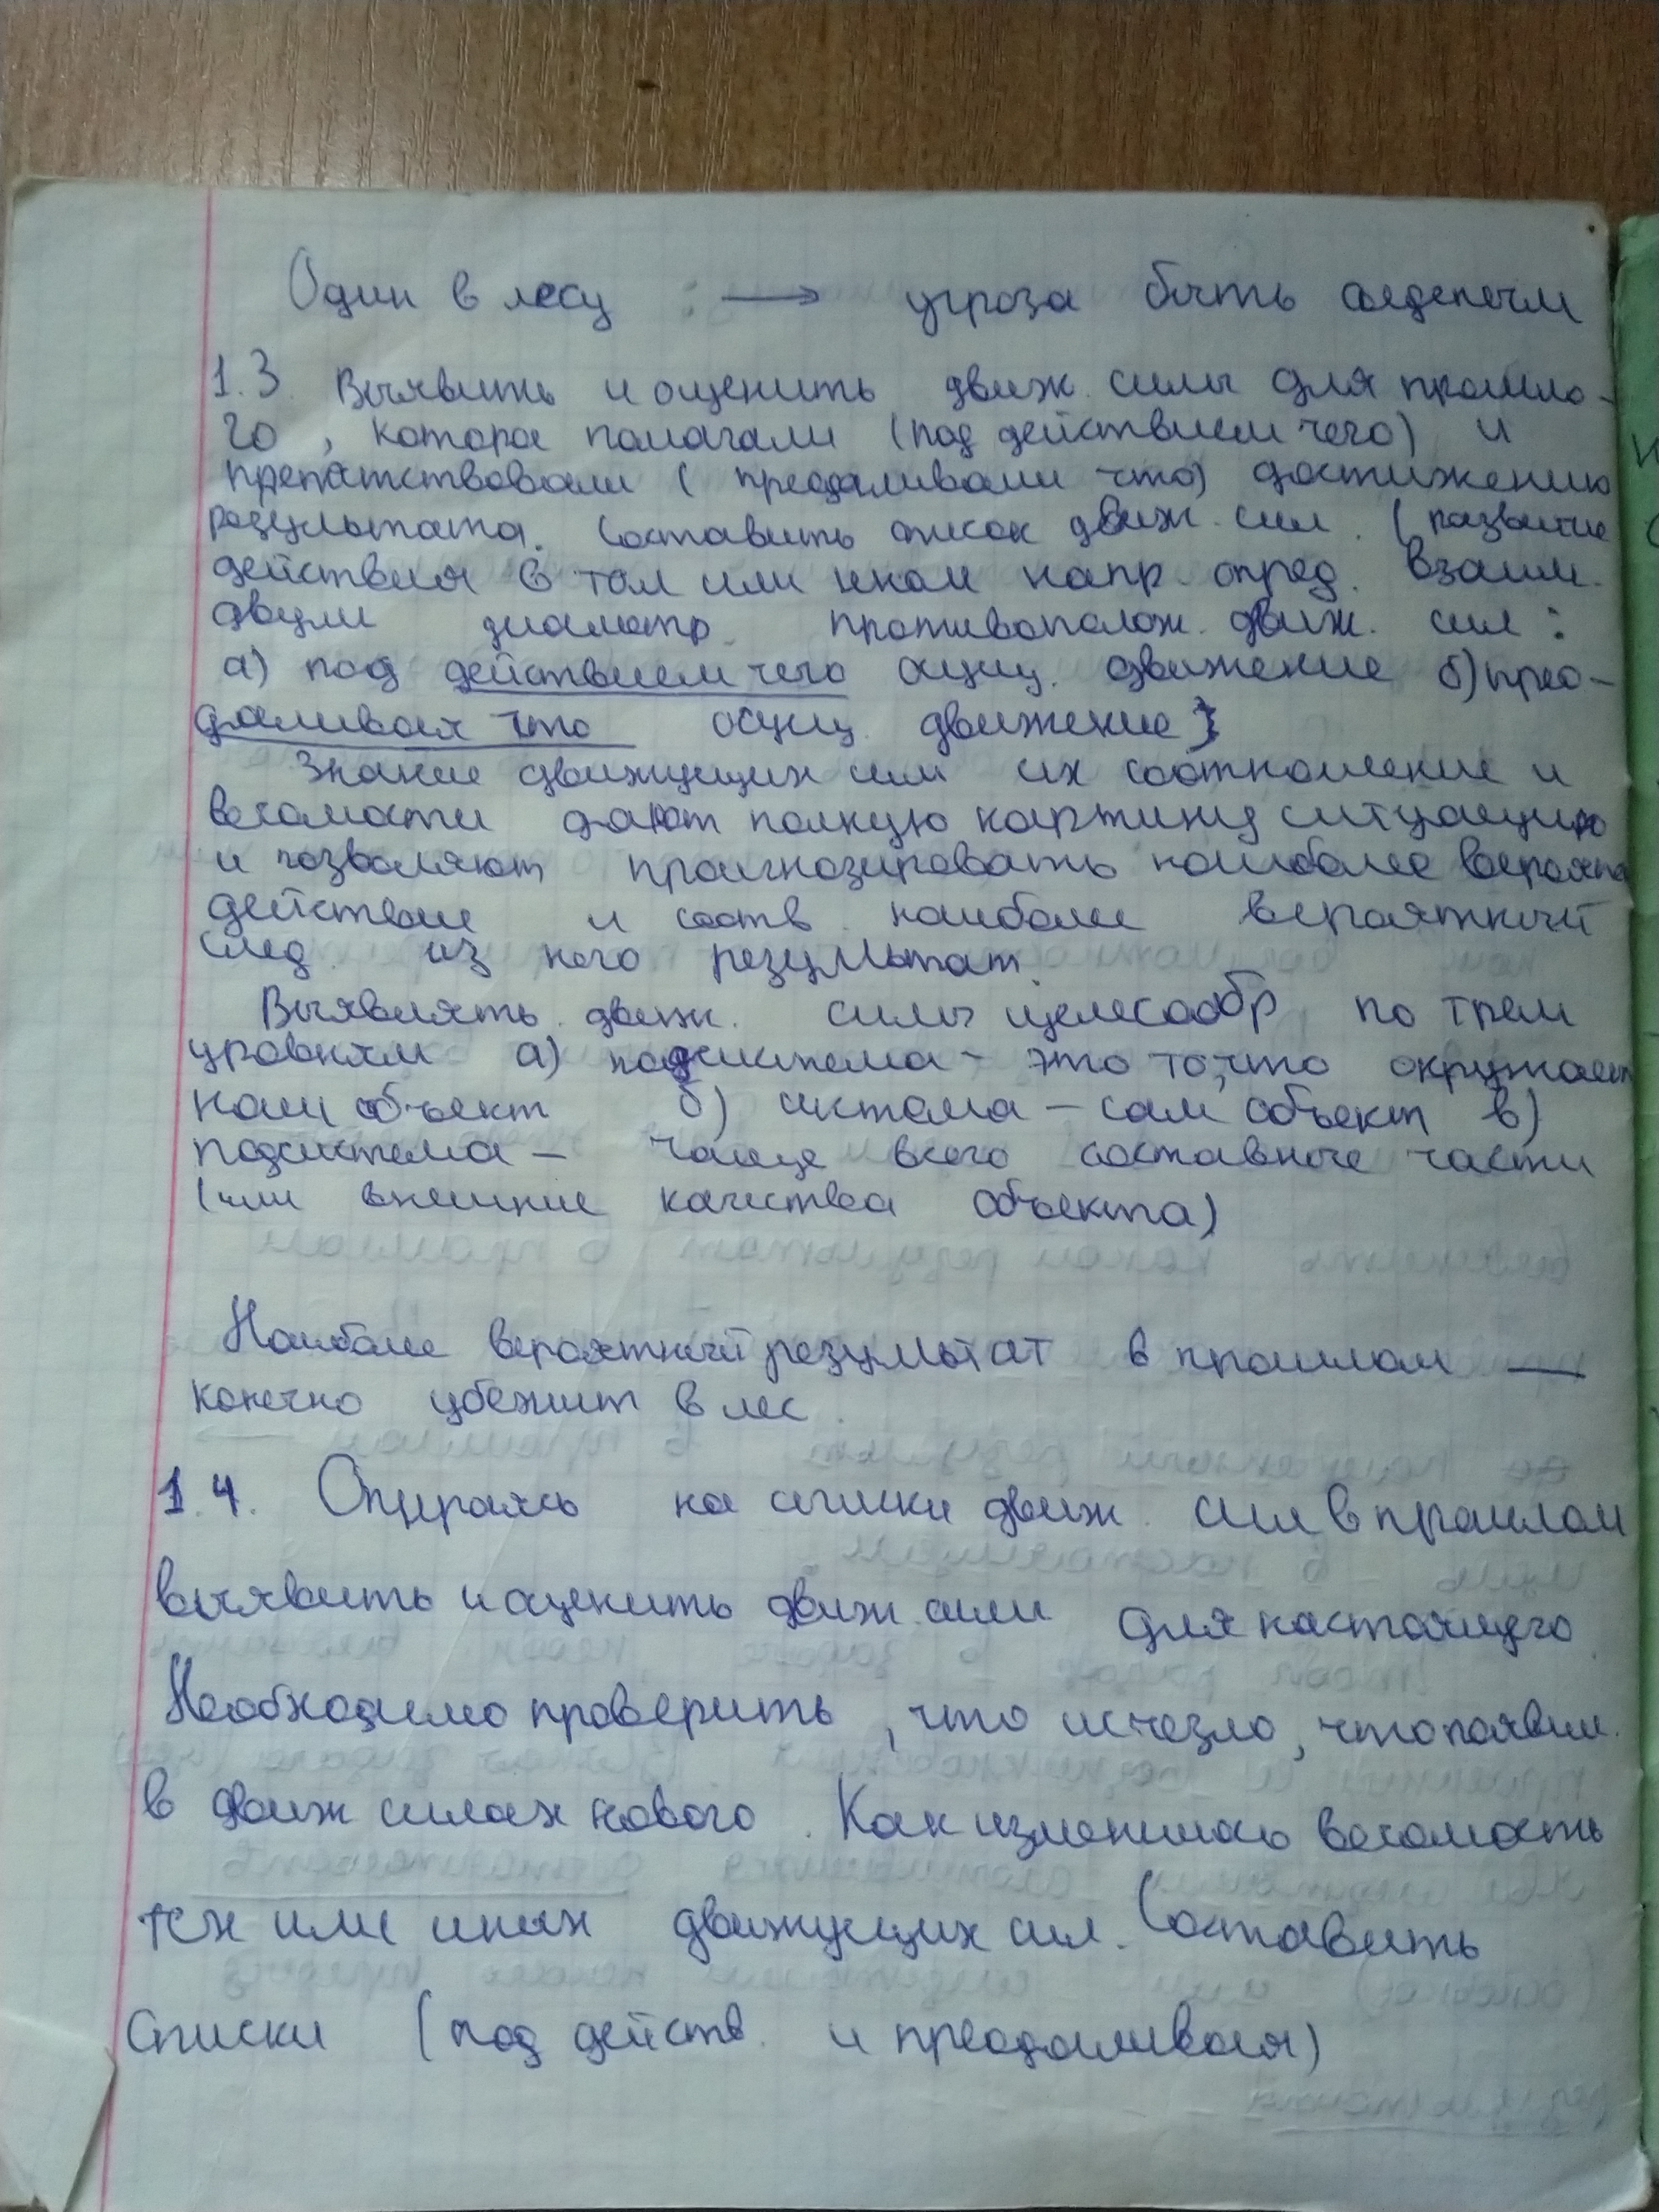 Один в лесу : → угроза быть съеденым
1.3 Выявить и оценить движ. силы для прошло-
го, которое помогали (под действием чего) и
препятствовали (преодаливали что) достижению
результата. Составить список движ. сил. (развитие
действия в том или ином напр. опред. взаим.
двумя диаметр. противополож. движ. сил:
а) под действием чего осущ. движение б) прео-
даливая что осущ. движение)
Знание движущих сил их соотношение и
весомости дают полную картину ситуацию
и позволяют прогнозировать наиболее вероятн
действие и соотв. наиболее вероятный
след. из него результат.
Выявлять движ. силы целесообр. по трем
уровням а) надсистема - это то, что окружает
наш объект б) система - сам объект в)
подсистема - чаще всего составные части
(или внешние качества объекта)
Наиболее вероятный результат в прошлом —
конечно убежит в лес.
1.4. Опираясь на списки движ. сил в прошлом
выявить и оценить движ. силы для настоящего.
Необходимо проверить, что исчезло, что появил.
в движ силах нового. Как изменилась весомость
тех или иных движущих сил. Составить
списки (под действ. и преодаливая)